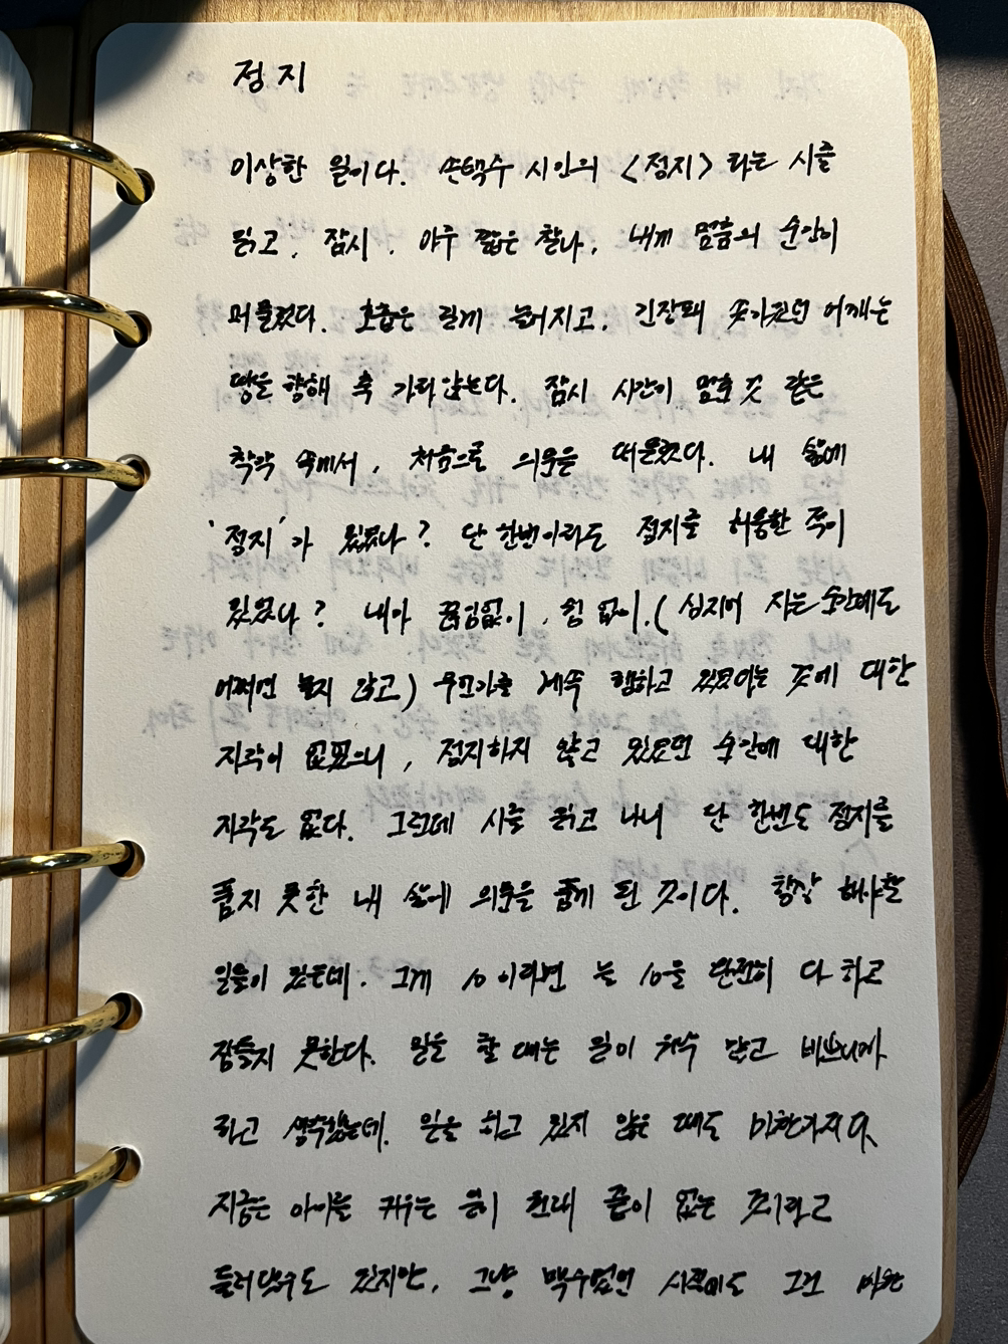 정지
이상한 일이다. 손택수 시인의 <정지> 라는 시를
읽고, 잠시, 아주 짧은 찰나, 내게 멈춤의 순간이
머물렀다. 호흡은 길게 늘어지고, 긴장돼 솟아있던 어깨는
땅을 향해 축 가라앉는다. 잠시 시간이 멈춘 것 같은
착각 속에서, 처음으로 의문을 떠올렸다. 내 삶에
'정지'가 있었나? 단 한번이라도 정지를 허용한 적이
있었나? 내가 끊임없이, 쉼 없이, (심지어 자는 순간에도
어쩌면 놓지 않고) 무언가를 계속 행하고 있었다는 것에 대한
자각이 없었으니, 정지하지 않고 있으면 순간에 대한
자각도 없다. 그런데 시를 읽고 나니 단 한번도 정지를
품지 못한 내 삶에 의문을 품게 된 것이다. 항상 해야할
일들이 있는데, 그게 10이라면 늘 10을 완전히 다 하고
잠들지 못한다. 일을 할 때는 일이 워낙 많고 바쁘니까
라고 생각했는데, 일을 하고 있지 않은 때도 마찬가지다.
지금은 아이를 키우는 일이 원래 끝이 없는 것이라고
둘러댈수도 있지만, 그냥 백수였던 시절에도 그런 마음